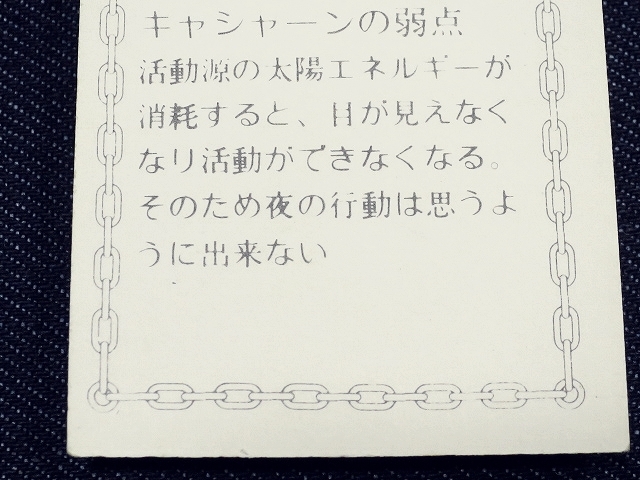 キャシャーンの弱点
活動源の太陽エネルギーが
消耗すると、目が見えなく
なり活動ができなくなる。
そのため夜の行動は思うよ
うに出来ない